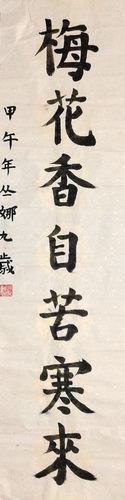 梅花香自苦寒來
甲午年丛娜九歲